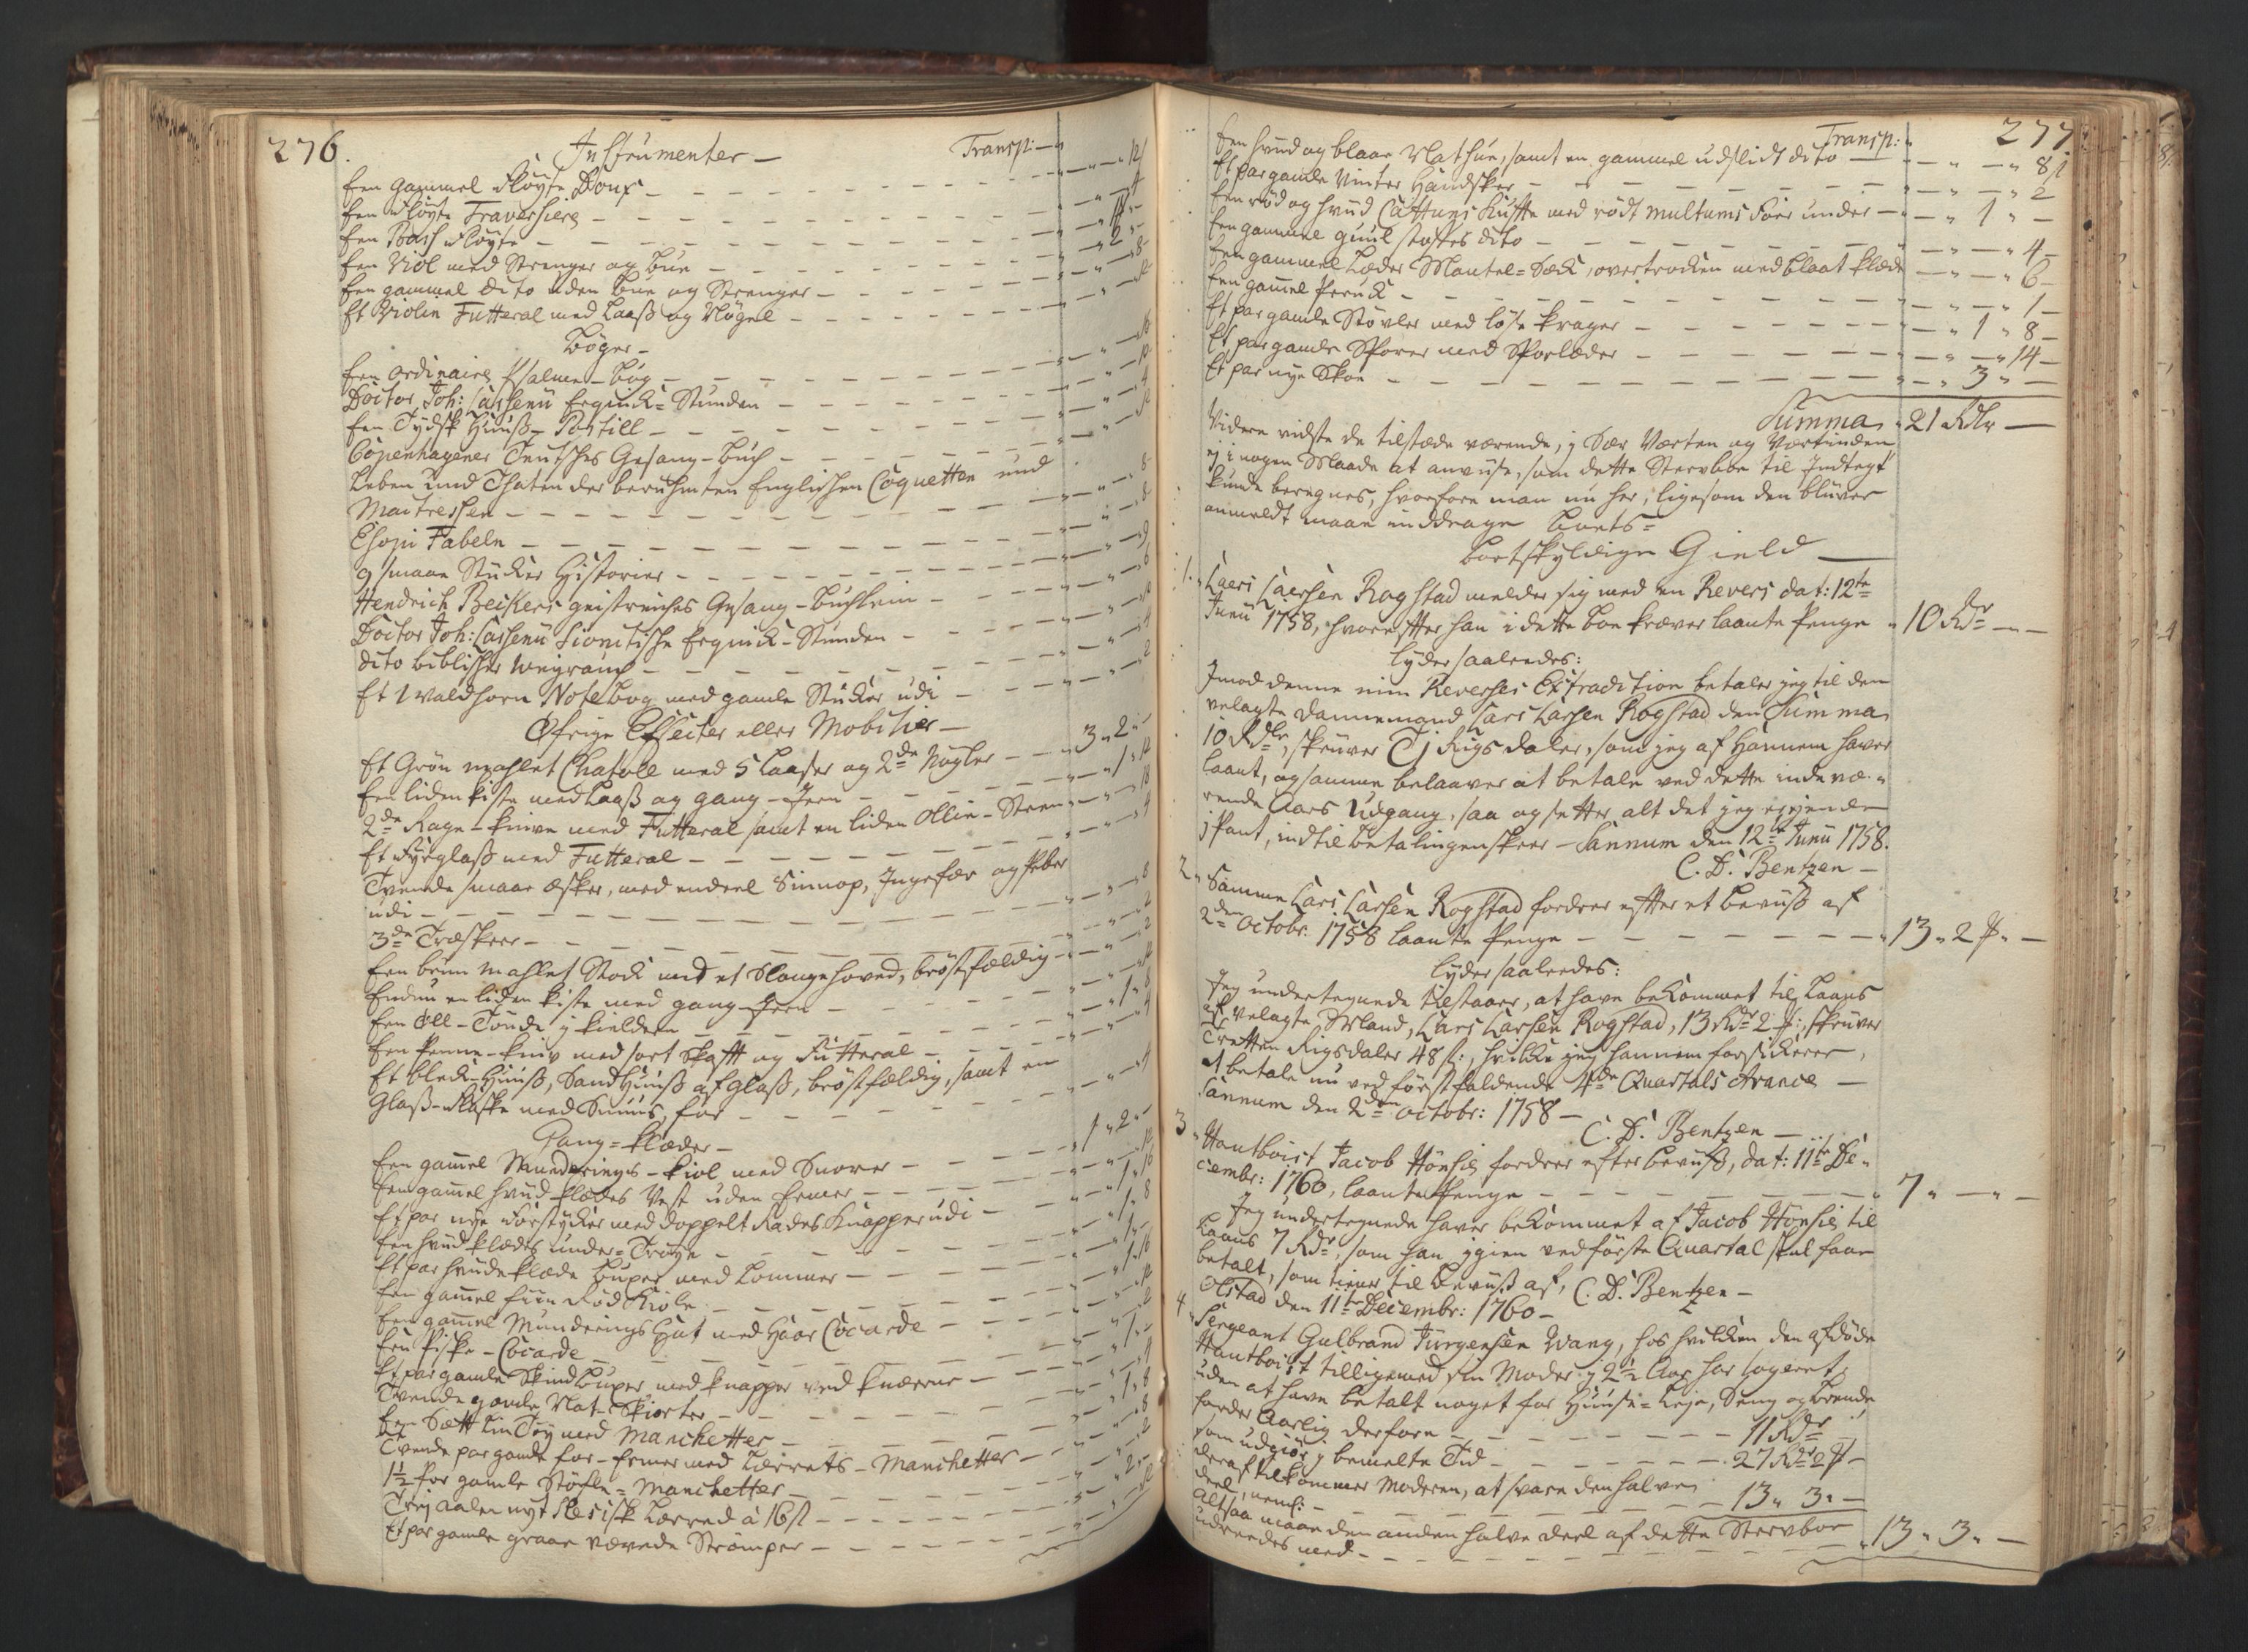 276.
Instrumenter —
Transp:
Een gammel Fløyte Doux — 12
Een Fløyte Traversiere — 4
Een Bass Fløyte —
Een Viol med Strenger og Bue — 2
Een gammel dito uden Bue og Strenger — 8
Et Violin Futteral med Laaß og Nøgel —
Bøger —
Een ordinaire Psalme-Bog —
Doctor Joh: Lassenii Erquick-Stunden —
Een Tydsk Huuß-Postill — 4
Copenhagener Teutsches Gesang-Buch —
Leben und Thaten der beruhmten Englischen Coquetten und
Maitressen — 8
Esopi Fabeln —
9 smaae Stucker Historier — 9
Hendrich Beckers geistreiches Gesang-Buchlein — 6
Doctor Joh: Lassenii Sionitische Erquick-Stunden —
dito biblischer Weyrauch — 4
Et Waldhorn Notebog med gamle Stucker udi — 2
Øfrige Effecter eller Mobilier —
Et Grøn mahlet Chatoll med 5 Laaser og 2de Nøgler — 3 " 2 "
Een liden Kiste med Laaß og gang-Jern — 1
2de Rage-Knive med Futteral samt en liden Ollie-Steen — 18
Et Fyrglaß med Futteral — 4
Tvende smaae Æsker, med endeel Sinnop, Ingefær og Peber
udi — 8
3de Træskeer — 2
Een brun mahlet Stock med et Slangehoved, brøstfældig — 2
Endnu en liden Kiste med gang-Jern —
Een Øll-Tønde j kielderen — 1 " 8
Een Penne-Kniv med sort Skafft og Futteral — 4
Et Bleck-Huuß, Sandhuuß af Glaß, brøstfældig, samt en
Glaß-Flaske med Snuus, for — 4
Gang-Klæder —
Een gammel Munderings-Kiol med Snorer — 1 " 2
Een gammel hvid Klædes Vest uden Ermer —
Et par nye Forstycker med doppelt Rades Knapper udi — 1 " 16
Een hvid Klædes under-Trøye — 1 " 8
Et par hvide Klæde Buxer med Lommer — 1
Een gammel fiin Rød Kiole — 1 " 16
Een gammel Munderings Hat med Haar Cocarde —
Een Piske-Cocarde — 2
Et par gamle Skind Buxer med Knapper ved Knæerne — 1
Tvende gamle Nat-Skiorter — 4
Een Sætt Lin Tøy med Manchetter — 1 " 8
Tvende par gamle for-Ermer med Lærrets-Manchetter — 8
1½ Par gamle Støfle-Manchetter — 2
Trej Aalen nyt Slesisk Lærred à 16 ß — 2
Et par gamle graae vævede Strømper —
277
Transp:
Een hvid og blaae Nathue, samt en gammel udslidt dito — 8 ß
Et par gamle Vinter Handsker — 2
Een rød og hvid Cattuns Kufte med rødt Multums Foer under — 1 " —
Een gammel guul stoffes dito — 4
Een gammel Læder Mantel-Sæck, overtrocken med blaat Klæde — 6
Een gammel Peruck — 1
Et par gamle Støvler med løse Krager — 1 " 8
Et par gamle Sporer med Sporlæder — 14
Et par nye Skoe — 3 " —
Summa " 21 Rdlr —
Videre vidste de tilstæde værende, j Sær Værten og Værtinden
ej i nogen Maade at anviise, som dette Stervboe til Indtegt
kunde beregnes, hvorfore man nu her, ligesom den bliver
anmeldt maae inddrage Boets-
bortskyldige Gield —
1. Lars Larsen Rogstad melder sig med en Revers dat: 12te
Junii 1758, hvorefter han i dette Boe kræver laante Penge " 10 Rdr —
lyder saaledes:
Imod denne min Reverses Extradition betaler jeg til den
velagte Dannemand Lars Larsen Rogstad den Summa
10 Rdlr, skriver Tj Rigsdaler, som jeg af Hannem haver
laant, og samme belaaver at betale ved dette indevæ-
rende Aars Udgang, saa og setter alt det jeg ejendes
j Pant, indtil betalingen skeer — Sannum den 12te Junii 1758.
C. D. Bentzen —
2. Samme Lars Larsen Rogstad fordrer efter et beviiß af
2den Octobr: 1758 laante Penge — " 13 " 2 " —
lyder saaledes:
Jeg undertegnede tilstaaer, at have bekommet til Laans
af velagte Mand, Lars Larsen Rogstad, 13 Rdr 2, skriver
Tretten Rigsdaler 48 ß:, hvilke jeg hannem forsickrer,
at betale nu ved første faldende 4de Quartals Avance —
Sannum den 2den Octobr: 1758 —
C. D. Bentzen —
3. Hautboist Jacob Hönsie fordrer efter beviiß, dat: 11te De-
cembr: 1760, laante Penge — " 7 " — " —
Jeg undertegnede haver bekommet af Jacob Hönsie til
Laans 7 Rdr, som han jgien ved første Quartal skal faae
betalt, som tiener til beviiß af, C. D. Bentzen —
Olstad den 11te Decembr: 1760 —
4. Sergeant Gulbrand Jürgensen Wang, hos hvilken den afdøde
Hautboist tilligemed sin Moder j 2½ Aar har logeret,
uden at have betalt noget for Huuse-Leje, Seng og brende,
forder Aarlig derfore — 11 Rdr —
som udgiør j bemelte Tid — 27 Rdr 2
deraf tilkommer Moderen, at svare den halve
deel, neml: — 13 " 3 " —
altsaa maae den anden halve deel af dette Stervboe
udreedes med — " 13 " 3 " —